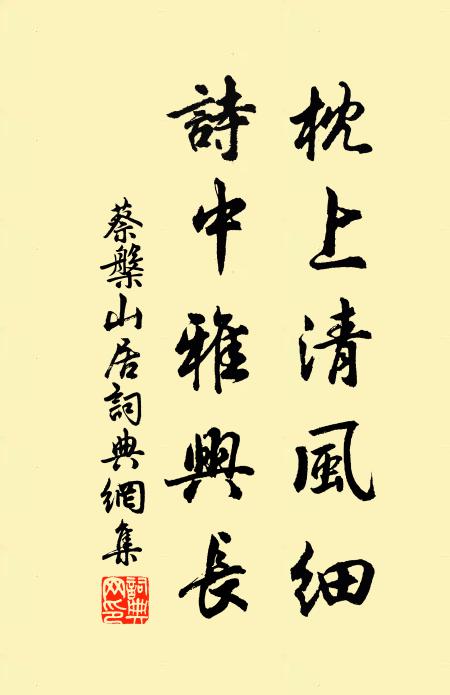 枕上清風細
詩中雅興長
蔡槃山居詞典網集
詞典网印